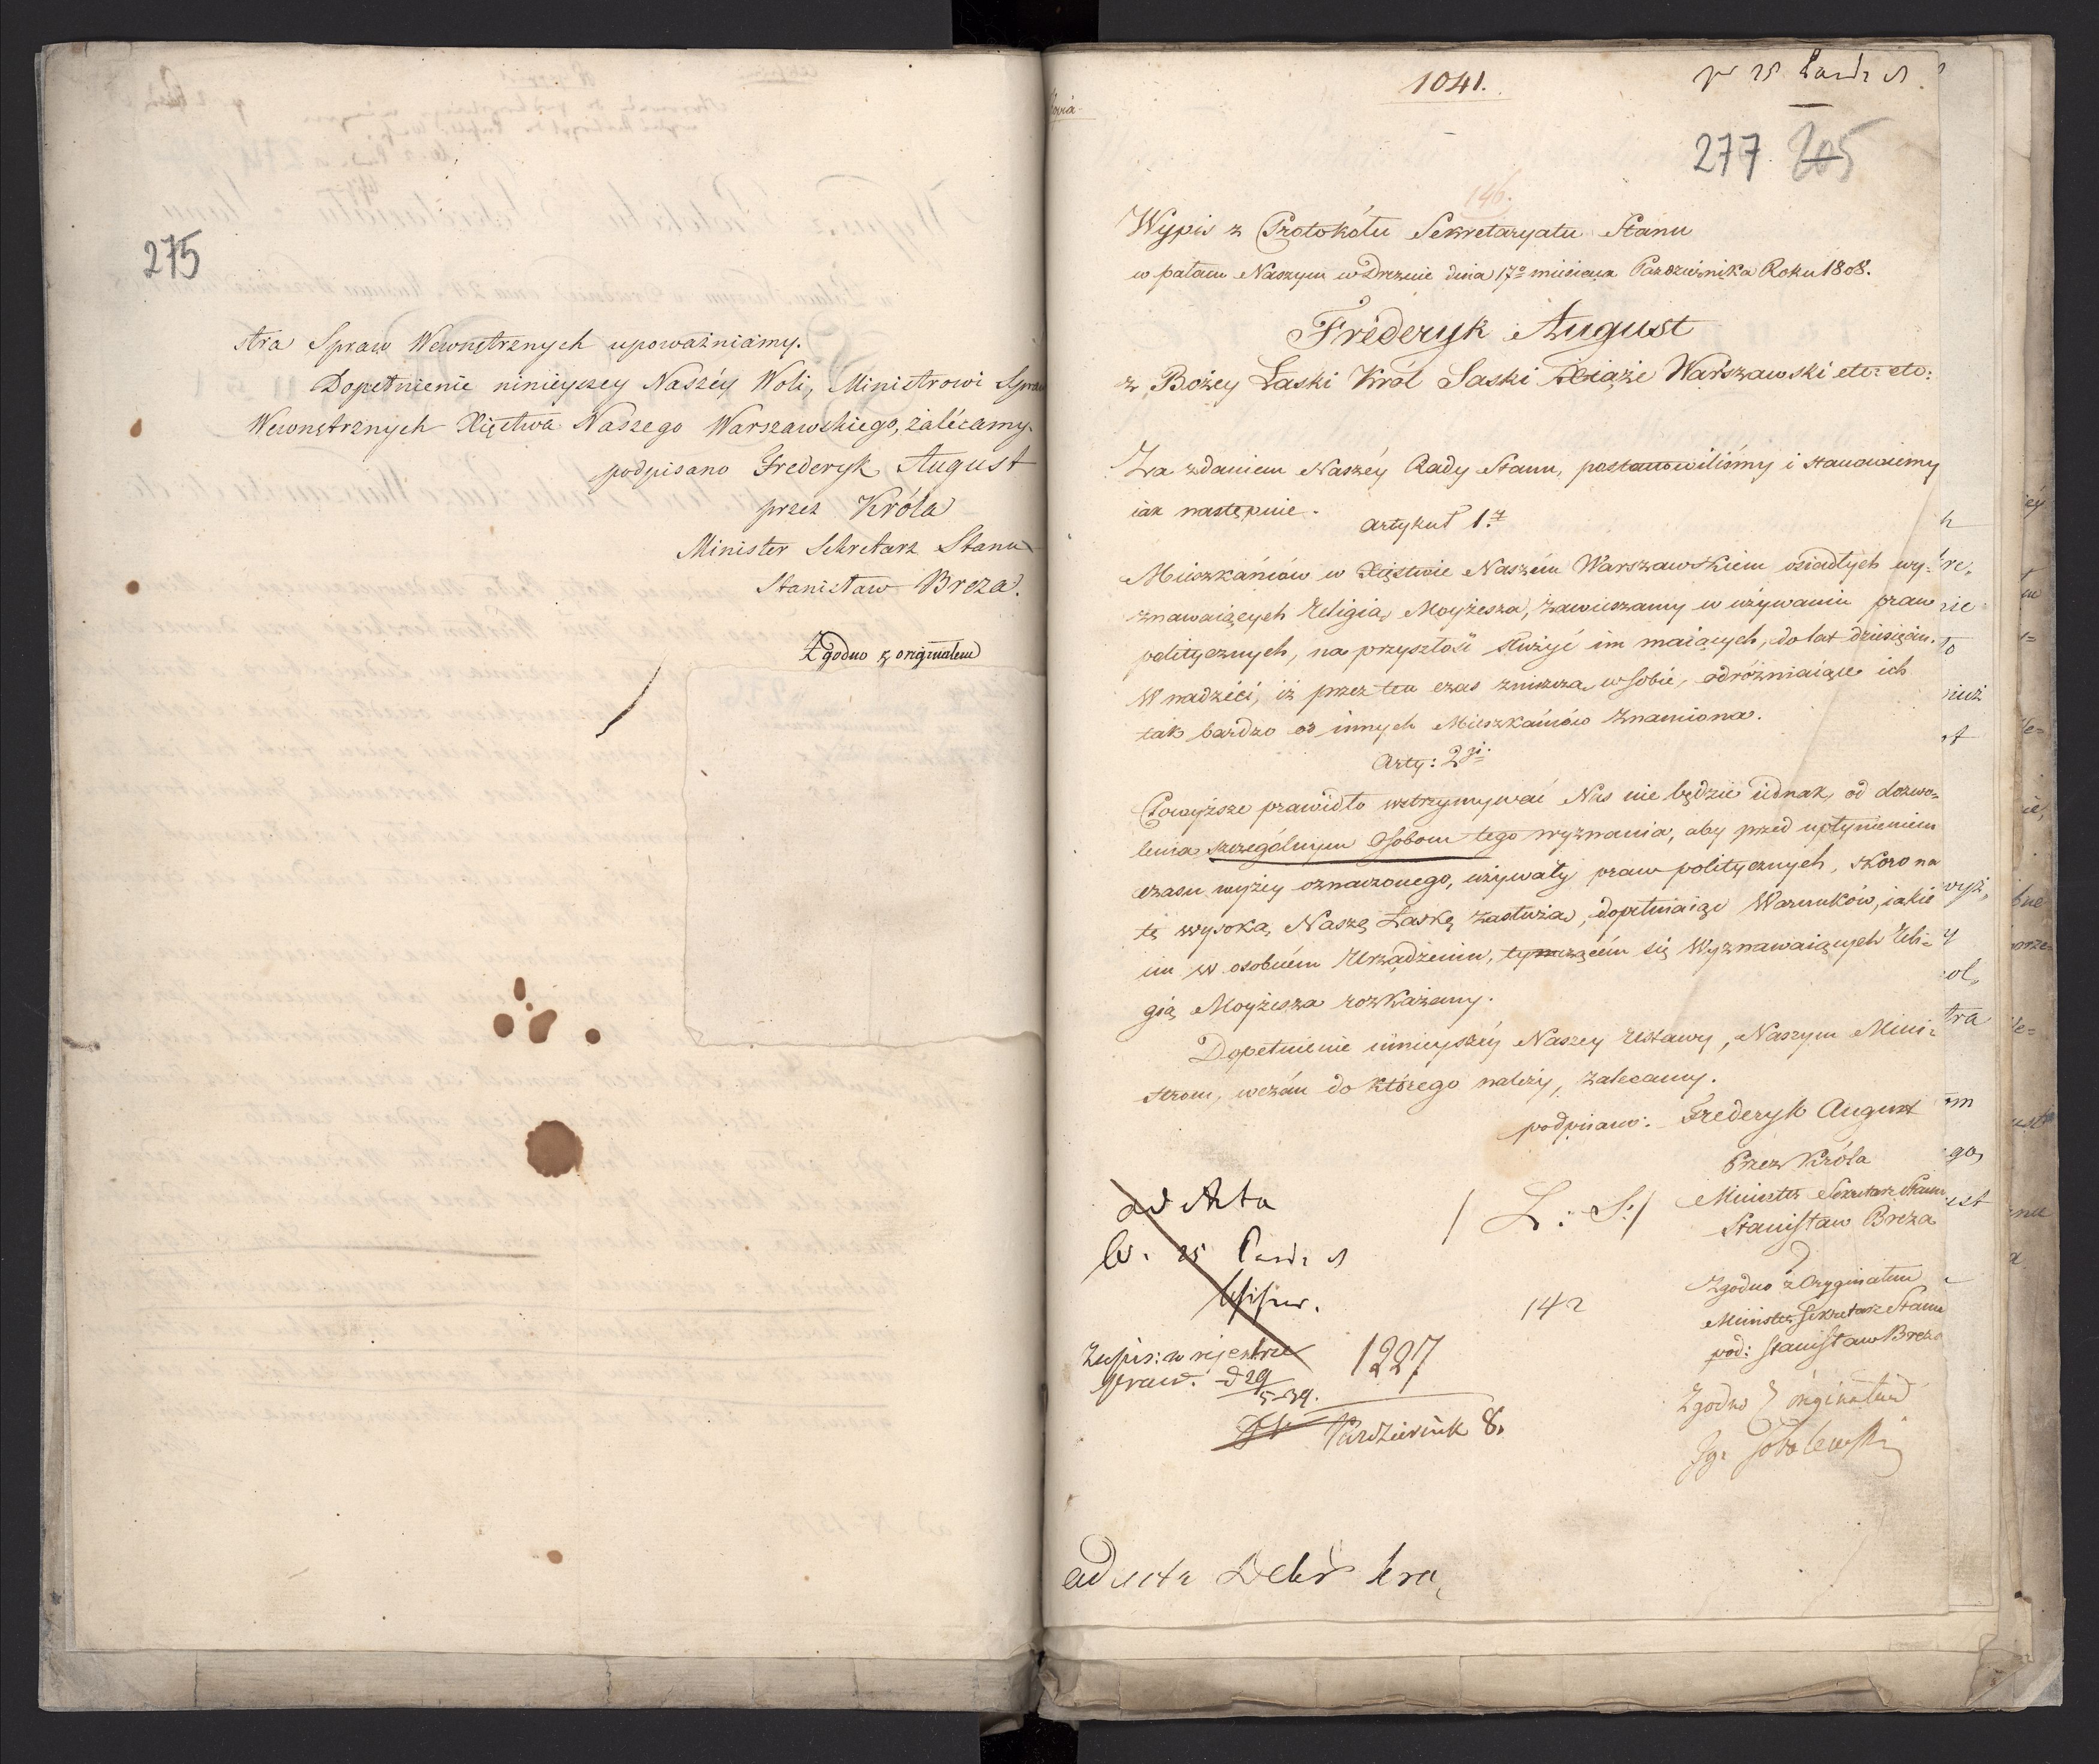 275
stra Spraw Wewnętrznych upoważniamy.
Dopełnienie ninieyszey Naszéy Woli, Ministrowi Spraw
Wewnętrznych Xięstwa Naszego Warszawskiego, zalécamy.
podpisano Frederyk August
przez Króla
Minister Sekretarz Stanu
Stanisław Breza.
Zgodno z originałem
1041.
277. 205
146.
Wypis z Protokółu Sekretaryatu Stanu
w pałacu Naszym w Dreznie dnia 17º miesiąca Pazdziernika Roku 1808.
Fréderyk August
z Bożey Łaski Król Saski Xiąże Warszawski etc: etc:
Za zdaniem Naszéy Rady Stanu, postanowiliśmy i stanowiemy
iak następuie.
Artykuł 1.
Mieszkańców w Xięstwie Naszém Warszawskiem osiadłych wy-
znawaiących Religią Moyżesza, zawieszamy w używaniu praw
politycznych, na przyszłość służyć im maiących, do lat dziesięciu.
W nadziei, iż przez ten czas zniszczą w sobie, odróżniaiące ich
tak bardzo od innych Mieszkańców znamiona.
Arty: 2gi.
Powyższe prawidło wstrzymywać Nas nie będzie iednak, od dozwo=
lenia szczególnym Osobom tego wyznania, aby przed upłynieniem
czasu wyżey oznaczonego, używały praw politycznych, skoro na
tę wysoką Naszę Łaskę zasłużą, dopełniaiąc Warunków, iakie
im w osobném Urządzeniu, tyczącém się Wyznawaiących Reli=
gią Moyżesza rozkażemy.
Dopełnienie ninieyszéy Naszey Ustawy, Naszym Mini=
strom, wczém do którego należy, zalecamy.
podpisano: Frederyk August
Przez Króla
/ L: S:/ Minister Sekretarz Stanu
Stanisław Breza
Zgodno z Oryginałem
Minister Sekretarz Stanu
pod: Stanisław Breza
Zgodno z originałem
Sobolewski
ad Acta
142
Zapis: w rejestrze
1227
Pazdziernik 8.
ad acta